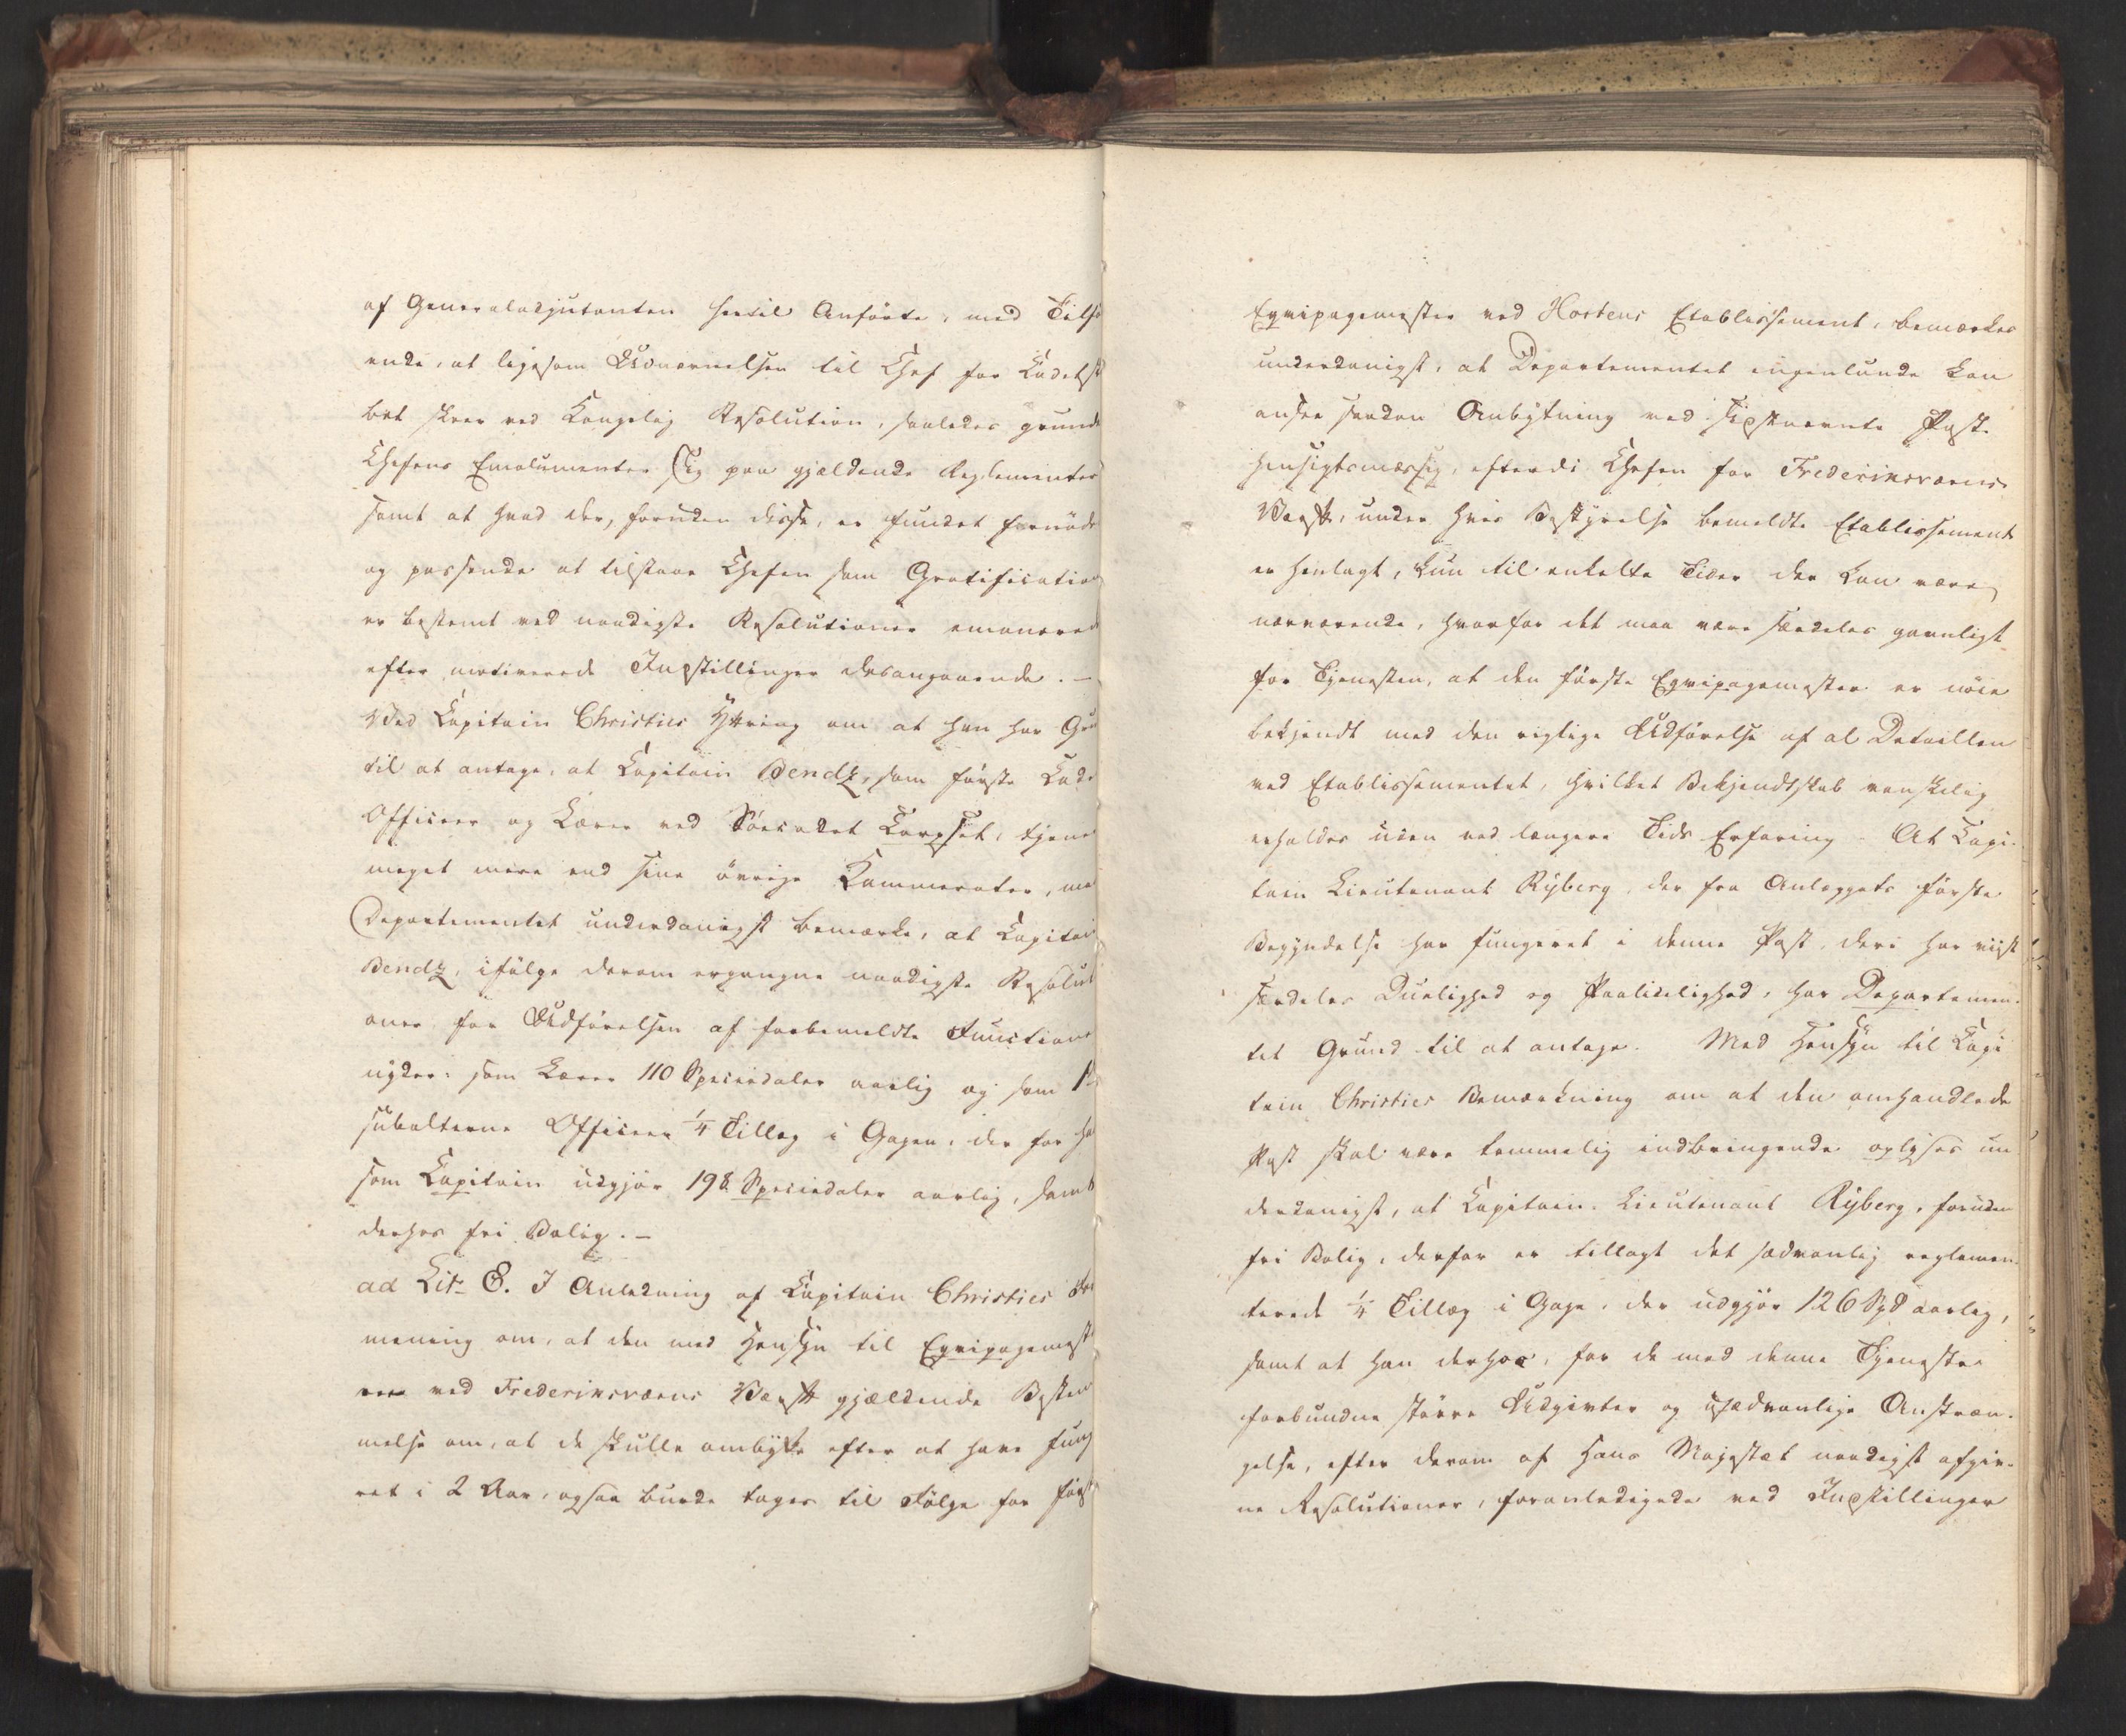 af Generaladjutanten hertil Anførte, med Tilfø
ende, at ligesom Udnævnelsen til Chef for Cadetsk
bet skeer ved Kongelig Resolution, saaledes grunde
Chefens Emolumenter sig paa gjældende Reglementer
samt at hvad der, foruden disse, er fundet fornöde
og passende at tilstaae Chefen som Gratification
er bestemt ved naadigste Resolutioner emanerede
efter motiverede Indstillinger desangaaende. –
Ved Capitain Christies Yttring om at han har Gru
til at antage, at Capitain Bendz, som første Cade
Officeer og Lærer ved Søecadet Corpset, tjener
meget mere end sine övrige Kammerater, maa
Departementet underdanigst bemærke, at Capitai
Bendz, ifølge derom ergangne naadigste Resoluti
oner for Udførelsen af forbemeldte Functione
nyder: som Lærer 110 Speciedaler aarlig og som 1ste
subalterne Officeer 1/4 Tillæg i Gagen, der for ha
som Capitain udgjør 198 Speciedaler aarlig, samt
derhos fri Bolig. –
ad Litr E. I Anledning af Capitain Christies For
mening om, at den med Hensyn til Eqvipagemest
rene ved Fredriksværns Værft gjældende Bestem
melse om, at de skulle ombytte efter at have fung
ret i 2 Aar, ogsaa burde tages til Følge for først
Eqvipagemester ved Hortens Etablissement, bemærkes
underdanigst, at Departementet ingenlunde kan
ansee saadan Ombytning ved sidstnævnte Post
hensigtsmæssig, efterdi Chefen for Frederiksværns
Værft, under hvis Bestyrelse bemeldte Etablissement
er henlagt, kun til enkelte Tider der kan være
nærværende, hvorfor det maa være særdeles gavnligt
for Tjenesten, at den første Eqvipagemester er nöie
bekjendt med den rigtige Udførelse af al Detaillen
ved Etablissementet, hvilket Bekjendtskab vanskelig
erholdes uden ved længere Tids Erfaring. At Capi-
tain Lieutenant Ryberg, der fra Anlæggets første
Begyndelse har fungeret i denne Post, deri har viist
særdeles Duelighed og Paalidelighed, har Departemen-
tet Grund til at antage. Med Hensyn til Capi
tain Christies Bemærkning om at den omhandlede
Post skal være temmelig indbringende oplyses un
derdanigst, at Capitain-Lieutenant Ryberg, foruden
fri Bolig, derfor er tillagt det sædvanlig reglemen-
terede 1/4 Tillæg i Gage, der udgjør 126 Spd aarlig,
samt at han derhos, for de med denne Tjeneste
forbundne større Udgivter og usædvanlige Anstræn-
gelse, efter derom af Hans Majestæt naadigst afgiv-
ne Resolutioner, foranledigede ved Indstillinger